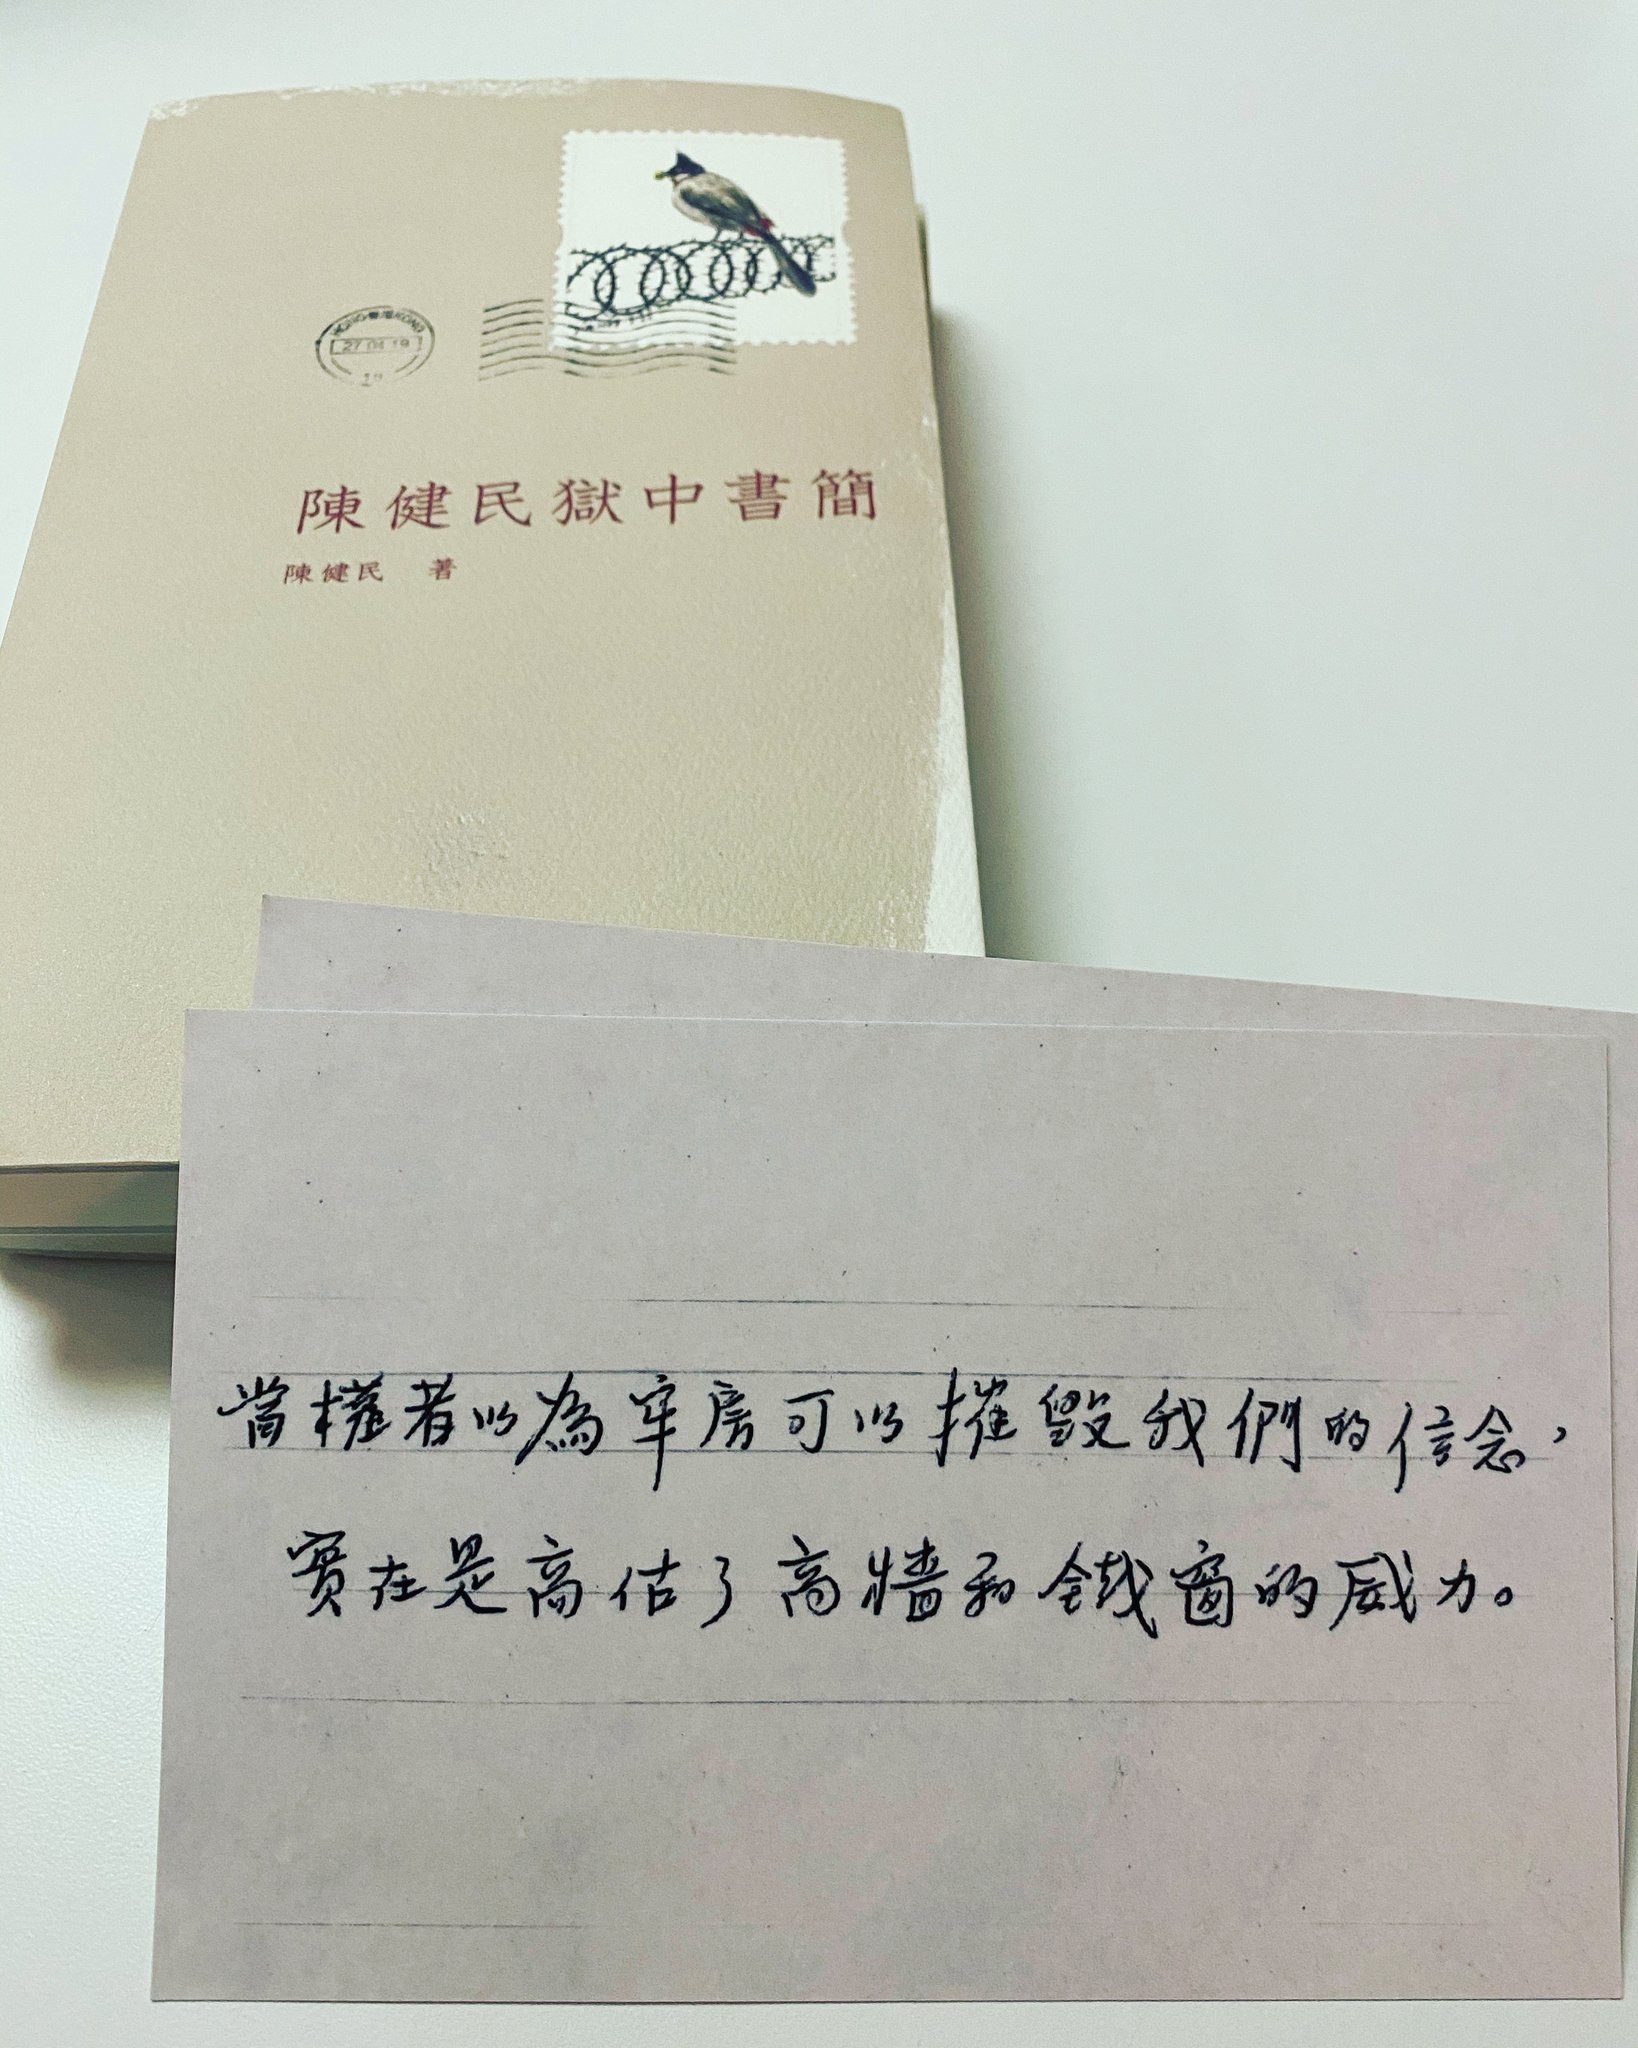 HONG 香港 KONG
27 04 19
陳健民獄中書簡
陳健民 著
當權者以為牢房可以摧毀我們的信念，
實在是高估了高牆和鐵窗的威力。